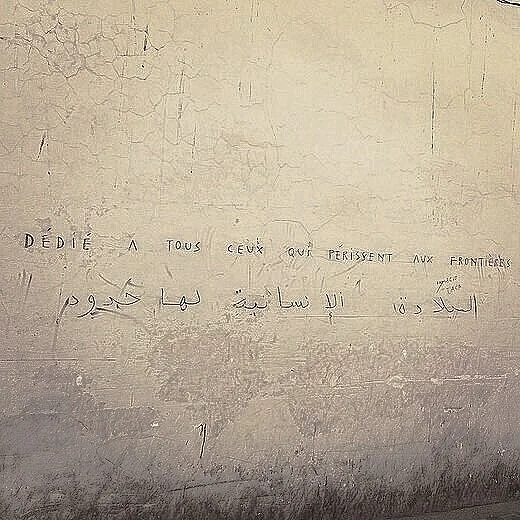 DÉDIÉ A TOUS CEUX QUI PÉRISSENT AUX FRONTIÈRES
الإنسانية لها حدود